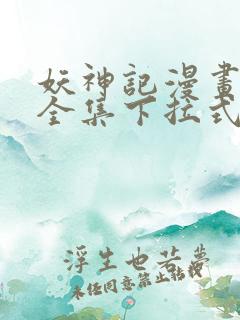 妖神記漫畫
全集下拉式
浮生也若夢
未任同意禁止轉載